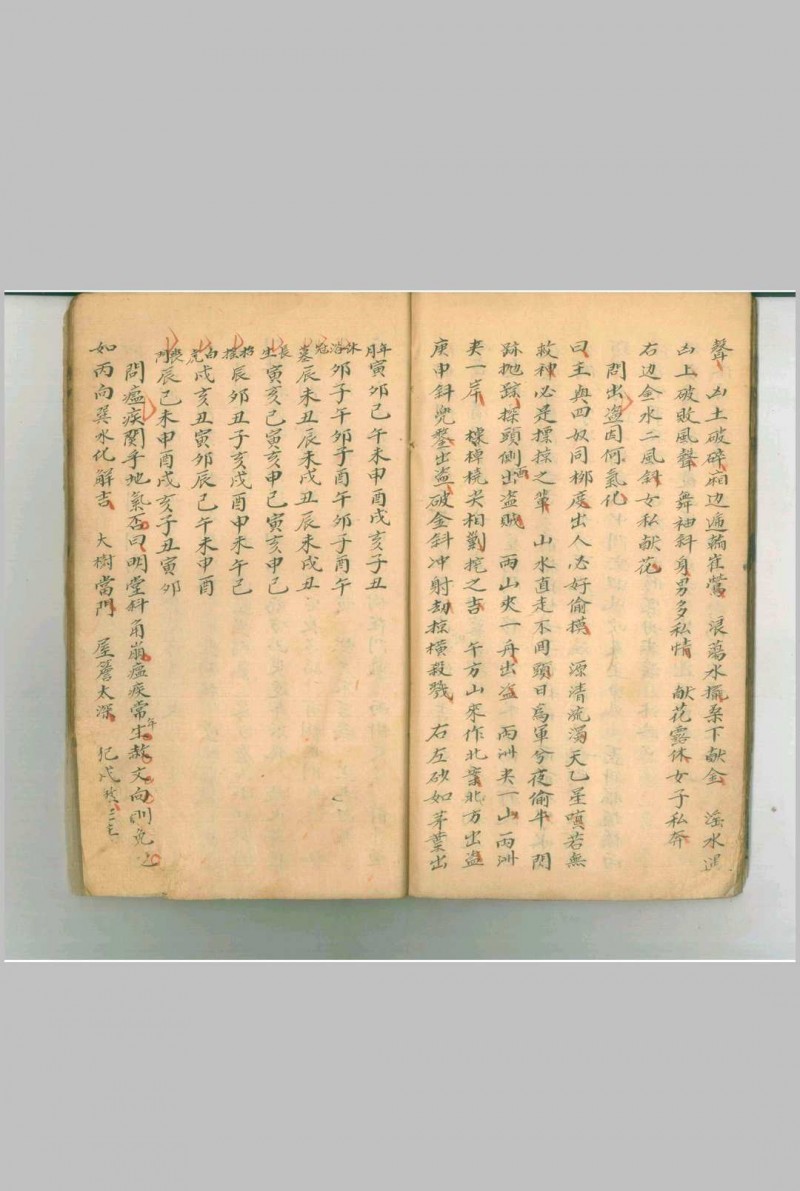 聲 凶土破碎廟边通 崔鶯 浪蕩水擺桑下献金 滛水遇
凶上破敗風聲 舞袖斜身男多私情 献花露休女子私奔
右边金水二風斜女私献花
問出盗因何氣化
曰主與四奴同柳度出人必好偷摸 源清流濁天乙星嗔若無
救神必是摽掠之輩 山水直走不囬頭日為軍兮夜偷牛 閃
跡抛踪探頭側出盗賊 兩山夾一舟出盗 兩洲夾一山兩洲
夾一岸 據棹橈尖相對挖之吉 午方山來作北案北方出盗
庚申斜兜鑿出盗 破金斜冲射劫掠横殺戮 右左砂如茅葉出
年月寅卯巳午未申酉戌亥子丑
沐浴冠卯子午卯子酉午卯子酉午
墓辰未丑辰未戌丑辰未戌丑
長生寅亥巳寅亥申巳寅亥申巳
招搖辰卯丑子亥戌酉申未午巳
白虎戌亥丑寅卯辰巳午未申酉
喪門辰巳未申酉戌亥子丑寅卯
問瘟疾関乎地氣否曰明堂斜角崩瘟疾常年生赦文向則免之
如丙向巽水化解吉 大樹當門 屋簷太深 犯戊